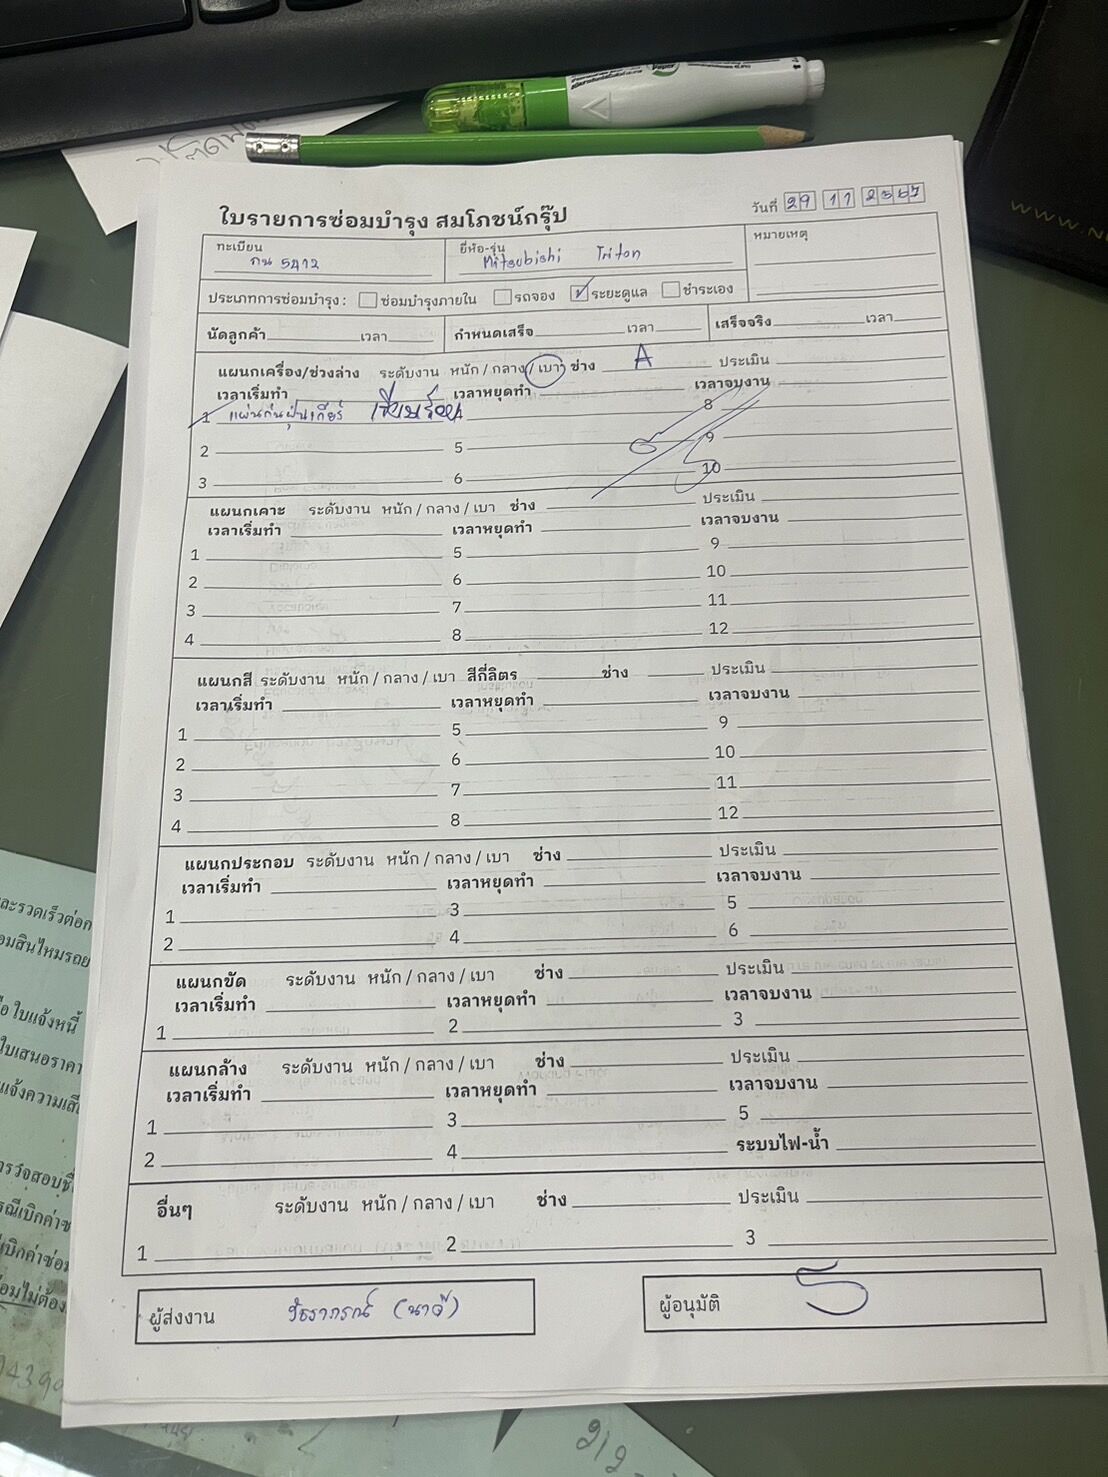 ใบรายการซ่อมบำรุง สมโภชน์กรุ๊ป
วันที่ 29 11 2567
ทะเบียน กน 5412
ยี่ห้อ-รุ่น Mitsubishi Triton
หมายเหตุ
ประเภทการซ่อมบำรุง : ซ่อมบำรุงภายใน รถจอง ระยะดูแล ชำระเอง
นัดลูกค้า เวลา กำหนดเสร็จ เวลา เสร็จจริง เวลา
แผนกเครื่อง/ช่วงล่าง ระดับงาน หนัก / กลาง / เบา ช่าง A ประเมิน
เวลาเริ่มทำ เวลาหยุดทำ เวลาจบงาน
1 แผ่นกันฝุ่นเกียร์ 4 8
2 5 9
3 6 10
แผนกเคาะ ระดับงาน หนัก / กลาง / เบา ช่าง ประเมิน
เวลาเริ่มทำ เวลาหยุดทำ เวลาจบงาน
1 5 9
2 6 10
3 7 11
4 8 12
แผนกสี ระดับงาน หนัก / กลาง / เบา สีกี่ลิตร ช่าง ประเมิน
เวลาเริ่มทำ เวลาหยุดทำ เวลาจบงาน
1 5 9
2 6 10
3 7 11
4 8 12
แผนกประกอบ ระดับงาน หนัก / กลาง / เบา ช่าง ประเมิน
เวลาเริ่มทำ เวลาหยุดทำ เวลาจบงาน
1 3 5
2 4 6
แผนกขัด ระดับงาน หนัก / กลาง / เบา ช่าง ประเมิน
เวลาเริ่มทำ เวลาหยุดทำ เวลาจบงาน
1 2 3
แผนกล้าง ระดับงาน หนัก / กลาง / เบา ช่าง ประเมิน
เวลาเริ่มทำ เวลาหยุดทำ เวลาจบงาน
1 3 5
2 4 ระบบไฟ-น้ำ
อื่นๆ ระดับงาน หนัก / กลาง / เบา ช่าง ประเมิน
1 2 3
ผู้ส่งงาน
ผู้อนุมัติ